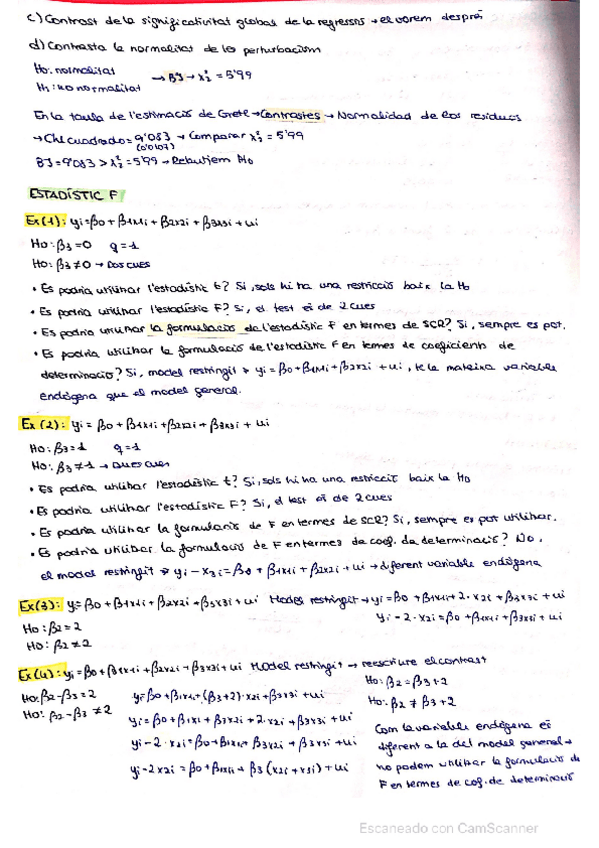 c) Contrast de la significativitat global de la regressió → el vorem després
d) Contrasta la normalitat de les perturbacions
H0: normalitat
H1: no normalitat → BJ → χ²2 = 5'99
En la taula de l'estimació de Gretl → Contrastes → Normalidad de los residuos
→ Chi cuadrado = 9'083 → Comparar χ²2 = 5'99
(0'0107)
BJ = 9'083 > χ²2 = 5'99 → Rebutjem H0
ESTADÍSTIC F
Ex(1): yi = β0 + β1x1i + β2x2i + β3x3i + ui
H0: β3 = 0 q = 1
H0: β3 ≠ 0 → Dos cues
• Es podria utilitzar l'estadístic t? Si, sols hi ha una restricció baix la H0
• Es podria utilitzar l'estadístic F? Si, el test és de 2 cues
• Es podria utilitzar la formulació de l'estadístic F en termes de SCR? Si, sempre es pot.
• Es podria utilitzar la formulació de l'estadístic F en termes de coeficients de
determinació? Si, model restringit → yi = β0 + β1x1i + β2x2i + ui, te la mateixa variable
endògena que el model general.
Ex(2): yi = β0 + β1x1i + β2x2i + β3x3i + ui
H0: β3 = 1 q = 1
H0: β3 ≠ 1 → Dues cues
• Es podria utilitzar l'estadístic t? Si, sols hi ha una restricció baix la H0
• Es podria utilitzar l'estadístic F? Si, el test és de 2 cues
• Es podria utilitzar la formulació de F en termes de SCR? Si, sempre es pot utilitzar.
• Es podria utilitzar la formulació de F en termes de coef. de determinació? No,
el model restringit → yi - x3i = β0 + β1x1i + β2x2i + ui → diferent variable endògena
Ex(3): yi = β0 + β1x1i + β2x2i + β3x3i + ui Model restringit → yi = β0 + β1x1i + 2·x2i + β3x3i + ui
H0: β2 = 2 yi - 2·x2i = β0 + β1x1i + β3x3i + ui
H0: β2 ≠ 2
Ex(4): yi = β0 + β1x1i + β2x2i + β3x3i + ui Model restringit → reescriure el contrast
H0: β2 = β3 + 2
H0: β2 - β3 = 2 yi = β0 + β1x1i + (β3+2)·x2i + β3x3i + ui H0: β2 ≠ β3 + 2
H0: β2 - β3 ≠ 2 yi = β0 + β1x1 + β3x2i + 2·x2i + β3x3i + ui
yi - 2·x2i = β0 + β1x1i + β3x2i + β3x3i + ui
yi - 2x2i = β0 + β1x1i + β3(x2i + x3i) + ui
Com la variable endògena és
diferent a la del model general →
no podem utilitzar la formulació de
F en termes de coef. de determinació
Escaneado con CamScanner